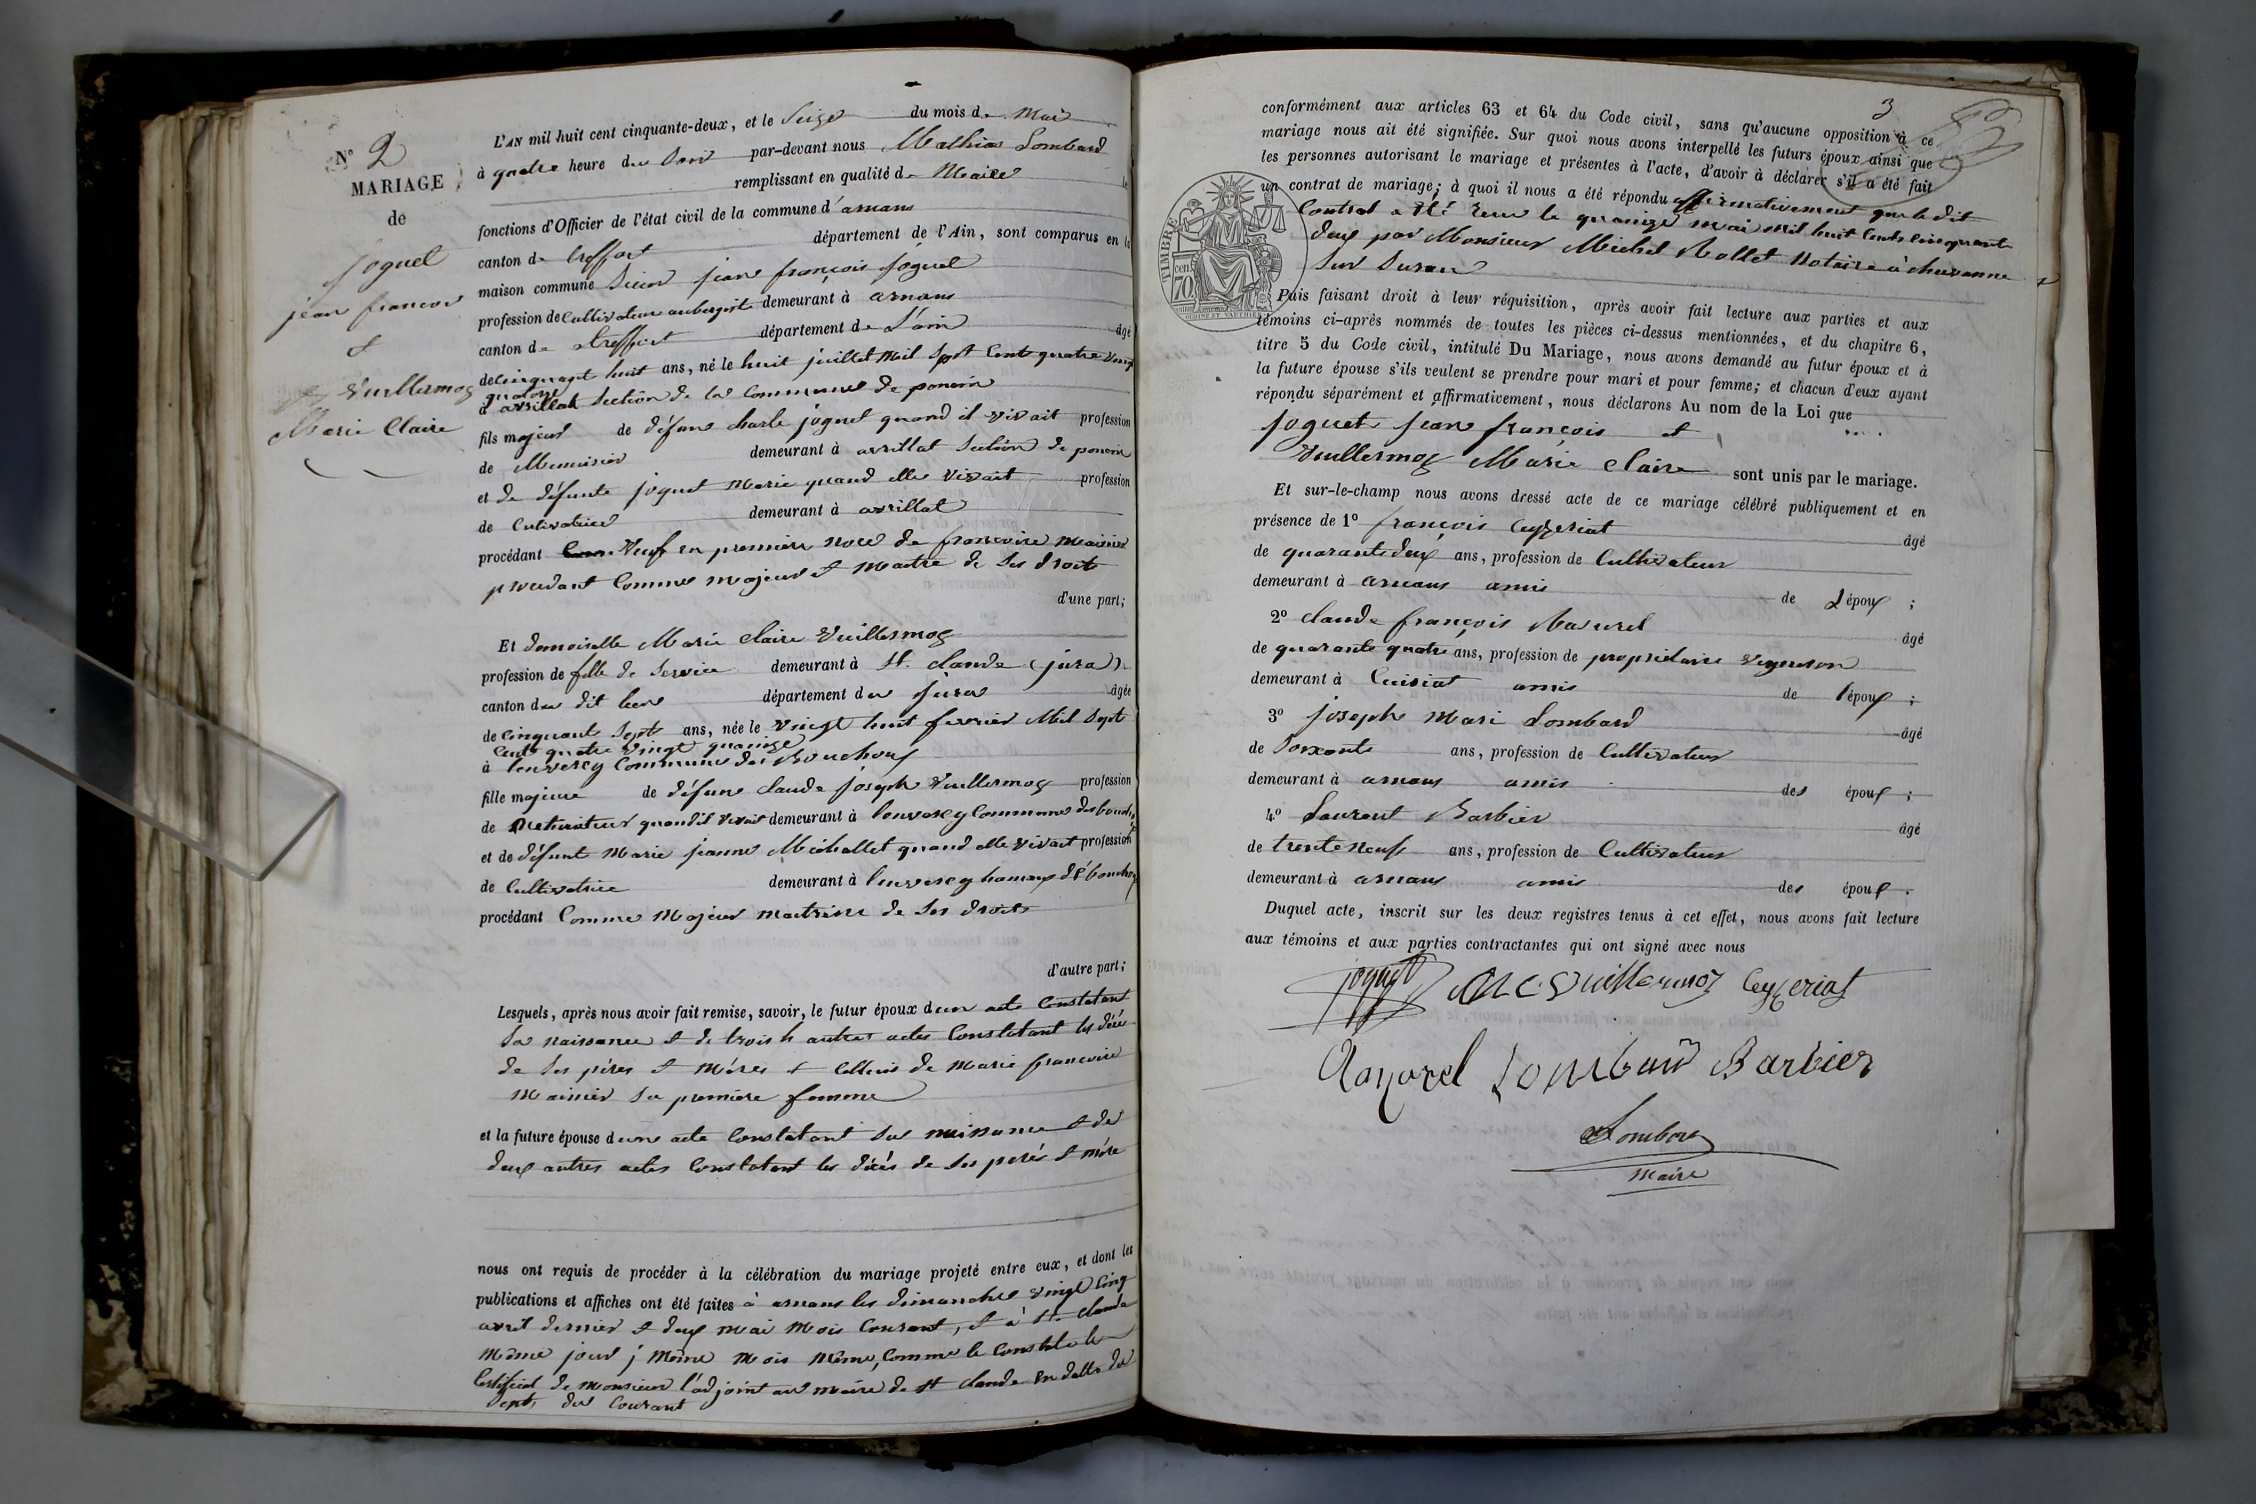 N° 2
MARIAGE
de
Joguet
jean françois
et
Vuillermoz
Marie Claire
L'AN mil huit cent cinquante-deux, et le Seize du mois de Mai
à quatre heure du Soir par-devant nous Mathias Lombard
remplissant en qualité de Maire le
fonctions d'Officier de l'état civil de la commune d'arnans
canton de treffort département de l'Ain, sont comparus en la
maison commune Sieur jean françois joguet
profession de Cultivateur aubergist demeurant à arnans
canton de treffort département de L'ain âgé
de Cinquant huit ans, né le huit juillet Mil Sept Cent quatre Vingt
quatorze
à avrillat Section de la Commune de poncin
fils majeur de défunt charle joguet quand il vivait profession
de Menuisier demeurant à avrillat Section de poncin
et de défunte joguet Marie quand elle vivait profession
de Cultivatrice demeurant à avrillat
procédant Veuf en première noce de francoise Mainier
procédant Comme majeur et Maitre de Ses droits
d'une part;
Et demoiselle Marie Claire Vuillermoz
profession de fille de Service demeurant à St. Claude (jura)
canton du dit lieu département du Jura âgée
de Cinquante Sept ans, née le Vingt huit fevrier Mil Sept
Cents quatre Vingt quainze
à lenversey Commune des Bouchoux
fille majeure de défunt Claude joseph Vuillermoz profession
de quandil vivait demeurant à lenversey Commune des bouchoux
et de défunt Marie jeanne Michallet quand elle vivait profession
de Cultivatrice demeurant à lenversey hameaux des bouchoux
procédant Comme Majeur maitrise de Ses droits
d'autre part;
Lesquels, après nous avoir fait remise, savoir, le futur époux d'un acte Constatant
Sa naissance et de trois autres actes Constatant les décès
de Ses pères et Mères et Celleui de Marie francoise
Mainier Sa première femme
et la future épouse d'une acte Constatant Sa naissance et de
deux autres actes Constatant les décès de Ses perés et mère
nous ont requis de procéder à la célébration du mariage projeté entre eux, et dont les
publications et affiches ont été faites à arnans les dimanches vingt Cinq
avril dernier et deux mai mois Courant, et à St. Claude
Même jour j Même Mois Même, Comme le Constate le
Certificat de Monsieur l'adjoint au maire de St Claude En datte du
Sept du Courant
3
conformément aux articles 63 et 64 du Code civil, sans qu'aucune opposition à ce
mariage nous ait été signifiée. Sur quoi nous avons interpellé les futurs époux ainsi que
les personnes autorisant le mariage et présentes à l'acte, d'avoir à déclarer s'il a été fait
un contrat de mariage; à quoi il nous a été répondu affirmativement que le dit
Contrat a été recu le quainze mai mil huit Cents Cinquant
deux par Monsieur Michel Rollet Notaire à chavanne
Sur Suran
TIMBRE
70 cen
Puis faisant droit à leur réquisition, après avoir fait lecture aux parties et aux
témoins ci-après nommés de toutes les pièces ci-dessus mentionnées, et du chapitre 6,
titre 5 du Code civil, intitulé Du Mariage, nous avons demandé au futur époux et à
la future épouse s'ils veulent se prendre pour mari et pour femme; et chacun d'eux ayant
répondu séparément et affirmativement, nous déclarons Au nom de la Loi que
Joguet jean françois et
Vuillermoz Marie Claire sont unis par le mariage.
Et sur-le-champ nous avons dressé acte de ce mariage célébré publiquement et en
présence de 1° françois Ceyzeriat âgé
de quarante deux ans, profession de Cultivateur
demeurant à arnans amis de L époux ;
2° Claude françois Mazurel âgé
de quarante quatre ans, profession de propriétaire Vigneron
demeurant à Cuisiat amis de l époux ;
3° joseph Mari Lombard âgé
de Soixante ans, profession de Cultivateur
demeurant à arnans amis des époux ;
4° Laurent Barbier âgé
de trente neuf ans, profession de Cultivateur
demeurant à arnans amis des époux .
Duquel acte, inscrit sur les deux registres tenus à cet effet, nous avons fait lecture
aux témoins et aux parties contractantes qui ont signé avec nous
joguet M C Vuillermoz Ceyzeriat
Mazurel Lombard Barbier
Lombard
Maire